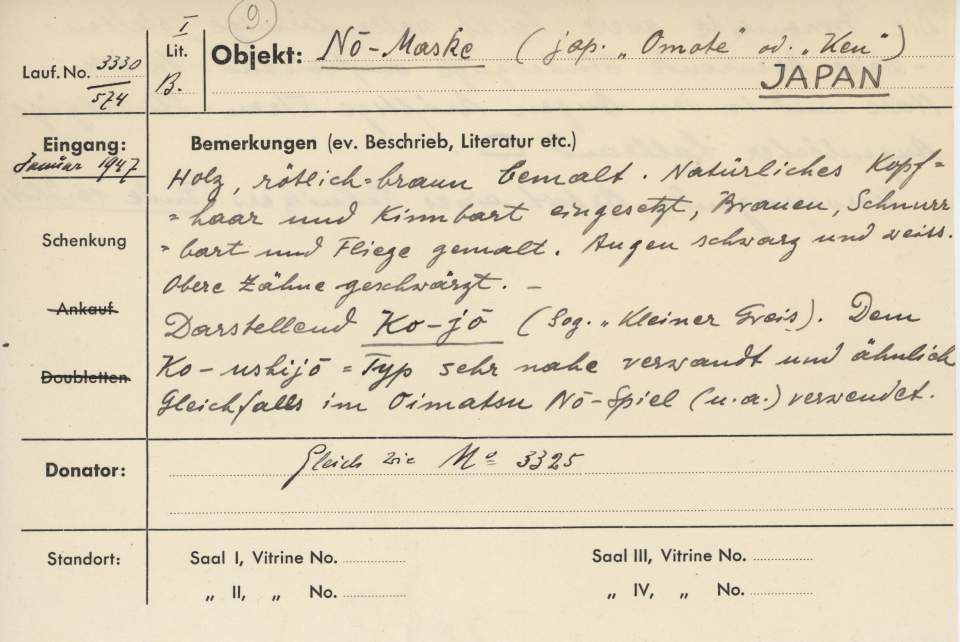 9.
I
Lauf. No. 3330
574
Lit.
B.
Objekt: Nō-Maske (jap. „Omote" od. „Ken")
JAPAN
Eingang:
Januar 1947
Schenkung
Ankauf
Doubletten
Bemerkungen (ev. Beschrieb, Literatur etc.)
Holz, rötlich=braun bemalt. Natürliches Kopf=
=haar und Kinnbart eingesetzt, Brauen, Schnurr
=bart und Fliege gemalt. Augen schwarz und weiss.
Obere Zähne geschwärzt. –
Darstellend Ko-jō (Sog. „Kleiner Greis). Dem
Ko-ushijō=Typ sehr nahe verwandt und ähnlich
Gleichfalls im Oimatsu Nō-Spiel (u.a.) verwendet.
Donator:
Gleich wie No 3325
Standort:
Saal I, Vitrine No.
Saal III, Vitrine No.
„ II, „ No.
„ IV, „ No.